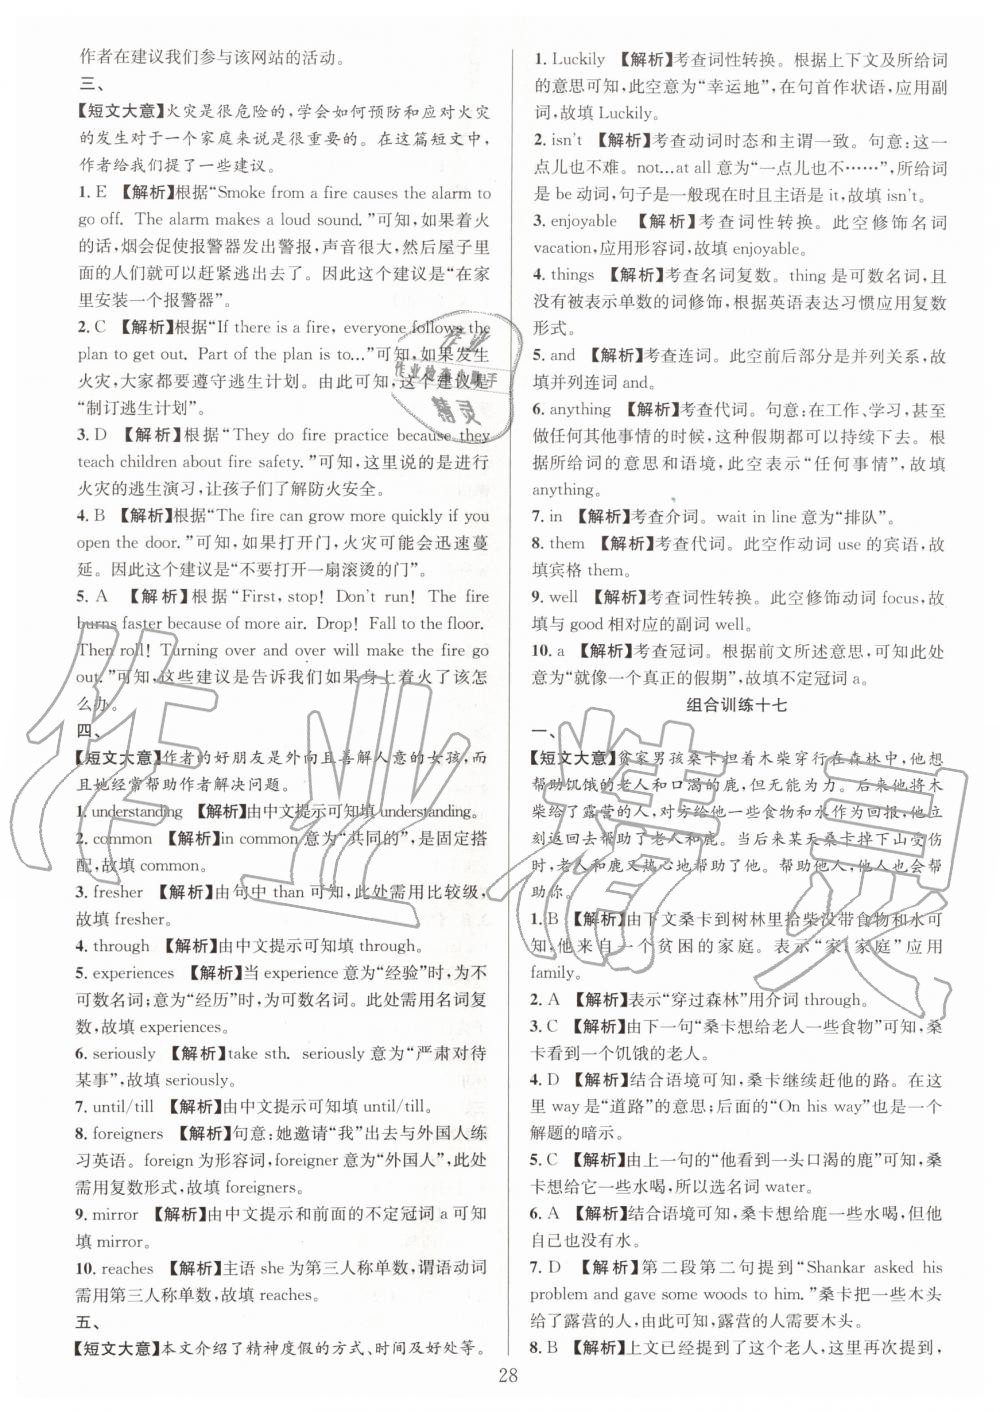 作者在建议我们参与该网站的活动。
三、
【短文大意】火灾是很危险的,学会如何预防和应对火灾
的发生对于一个家庭来说是很重要的。在这篇短文中,
作者给我们提了一些建议。
1. E 【解析】根据“Smoke from a fire causes the alarm to
go off. The alarm makes a loud sound.”可知,如果着火
的话,烟会促使报警器发出警报,声音很大,然后屋子里
面的人们就可以赶紧逃出去了。因此这个建议是“在家
里安装一个报警器”。
2. C 【解析】根据“If there is a fire, everyone follows the
plan to get out. Part of the plan is to...”可知,如果发生
火灾,大家都要遵守逃生计划。由此可知,这个建议是
“制订逃生计划”。
3. D 【解析】根据“They do fire practice because they
teach children about fire safety.”可知,这里说的是进行
火灾的逃生演习,让孩子们了解防火安全。
4. B 【解析】根据“The fire can grow more quickly if you
open the door.”可知,如果打开门,火灾可能会迅速蔓
延。因此这个建议是“不要打开一扇滚烫的门”。
5. A 【解析】根据“First, stop! Don't run! The fire
burns faster because of more air. Drop! Fall to the floor.
Then roll! Turning over and over will make the fire go
out.”可知,这些建议是告诉我们如果身上着火了该怎
么办。
四、
【短文大意】作者的好朋友是外向且善解人意的女孩,而
且她经常帮助作者解决问题。
1. understanding 【解析】由中文提示可知填 understanding。
2. common 【解析】in common 意为“共同的”,是固定搭
配,故填 common。
3. fresher 【解析】由句中 than 可知,此处需用比较级,
故填 fresher。
4. through 【解析】由中文提示可知填 through。
5. experiences 【解析】当 experience 意为“经验”时,为不
可数名词;意为“经历”时,为可数名词。此处需用名词复
数,故填 experiences。
6. seriously 【解析】take sth. seriously 意为“严肃对待
某事”,故填 seriously。
7. until/till 【解析】由中文提示可知填 until/till。
8. foreigners 【解析】句意:她邀请“我”出去与外国人练
习英语。foreign 为形容词,foreigner 意为“外国人”,此处
需用复数形式,故填 foreigners。
9. mirror 【解析】由中文提示和前面的不定冠词 a 可知
填 mirror。
10. reaches 【解析】主语 she 为第三人称单数,谓语动词
需用第三人称单数,故填 reaches。
五、
【短文大意】本文介绍了精神度假的方式、时间及好处等。
1. Luckily 【解析】考查词性转换。根据上下文及所给词
的意思可知,此空意为“幸运地”,在句首作状语,应用副
词,故填 Luckily。
2. isn't 【解析】考查动词时态和主谓一致。句意:这一
点儿也不难。not...at all 意为“一点儿也不……”,所给词
是 be 动词,句子是一般现在时且主语是 it,故填 isn't。
3. enjoyable 【解析】考查词性转换。此空修饰名词
vacation,应用形容词,故填 enjoyable。
4. things 【解析】考查名词复数。thing 是可数名词,且
没有被表示单数的词修饰,根据英语表达习惯应用复数
形式。
5. and 【解析】考查连词。此空前后部分是并列关系,故
填并列连词 and。
6. anything 【解析】考查代词。句意:在工作、学习,甚至
做任何其他事情的时候,这种假期都可以持续下去。根
据所给词的意思和语境,此空表示“任何事情”,故填
anything。
7. in 【解析】考查介词。wait in line 意为“排队”。
8. them 【解析】考查代词。此空作动词 use 的宾语,故
填宾格 them。
9. well 【解析】考查词性转换。此空修饰动词 focus,故
填与 good 相对应的副词 well。
10. a 【解析】考查冠词。根据前文所述意思,可知此处
意为“就像一个真正的假期”,故填不定冠词 a。
组合训练十七
一、
【短文大意】贫家男孩桑卡担着木柴穿行在森林中,他想
帮助饥饿的老人和口渴的鹿,但无能为力。后来他将木
柴给了露营的人,对方给他一些食物和水作为回报,他立
刻返回去帮助了老人和鹿。当后来某天桑卡掉下山受伤
时,老人和鹿又热心地帮助了他。帮助他人,他人也会帮
助你。
1. B 【解析】由下文桑卡到树林里拾柴没带食物和水可
知,他来自一个贫困的家庭。表示“家;家庭”应用
family。
2. A 【解析】表示“穿过森林”用介词 through。
3. C 【解析】由下一句“桑卡想给老人一些食物”可知,桑
卡看到一个饥饿的老人。
4. D 【解析】结合语境可知,桑卡继续赶他的路。在这
里 way 是“道路”的意思;后面的“On his way”也是一个
解题的暗示。
5. C 【解析】由上一句的“他看到一头口渴的鹿”可知,桑
卡想给它一些水喝,所以选名词 water。
6. A 【解析】结合语境可知,桑卡想给鹿一些水喝,但他
自己也没有水。
7. D 【解析】第二段第二句提到“Shankar asked his
problem and gave some woods to him.”桑卡把一些木头
给了露营的人,由此可知,露营的人需要木头。
8. B 【解析】上文已经提到了这个老人,这里再次提到,
28
作业
作业检查小助手
精灵
作业精灵